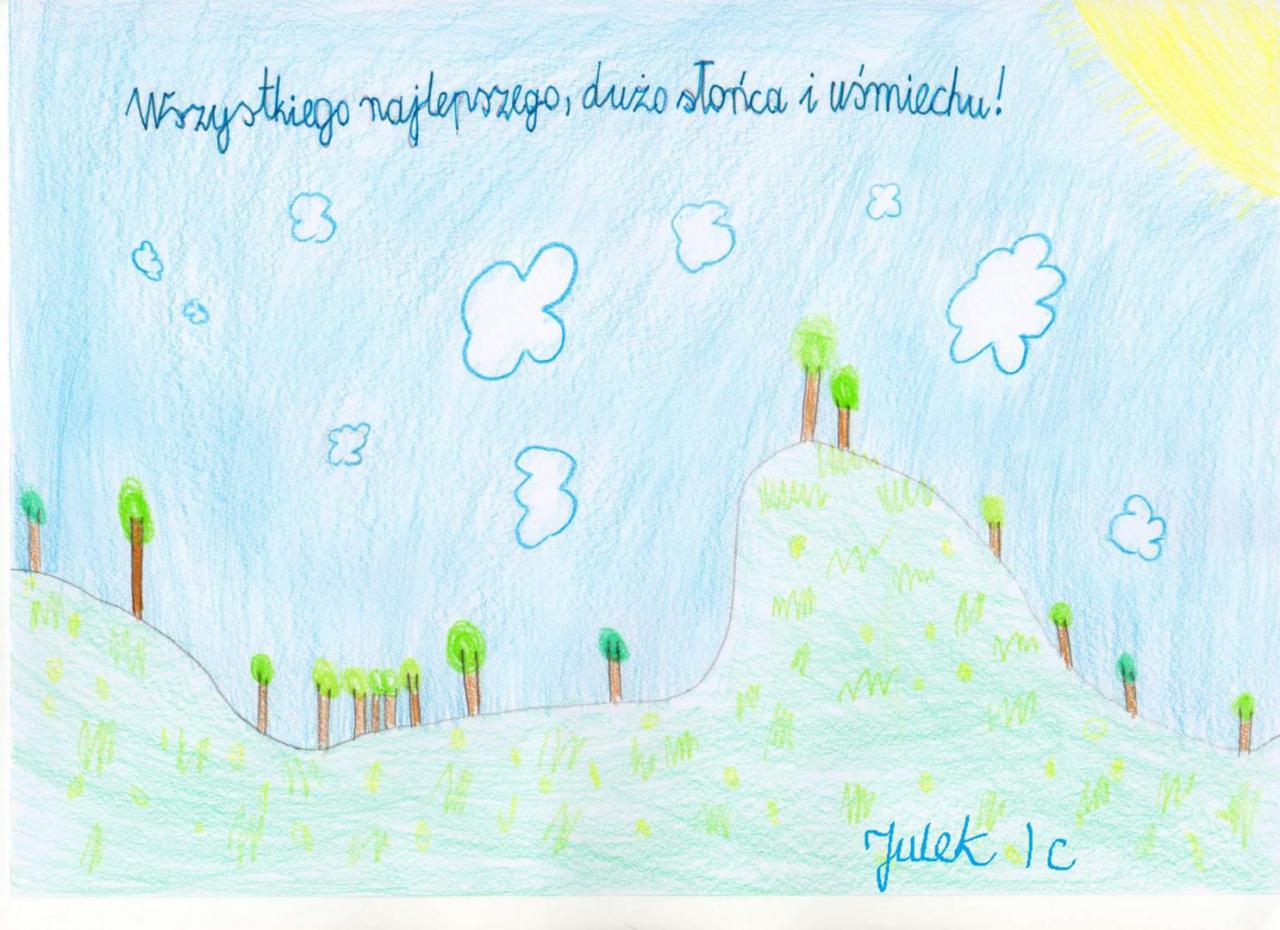 Wszystkiego najlepszego, dużo słońca i uśmiechu!
Julek 1c